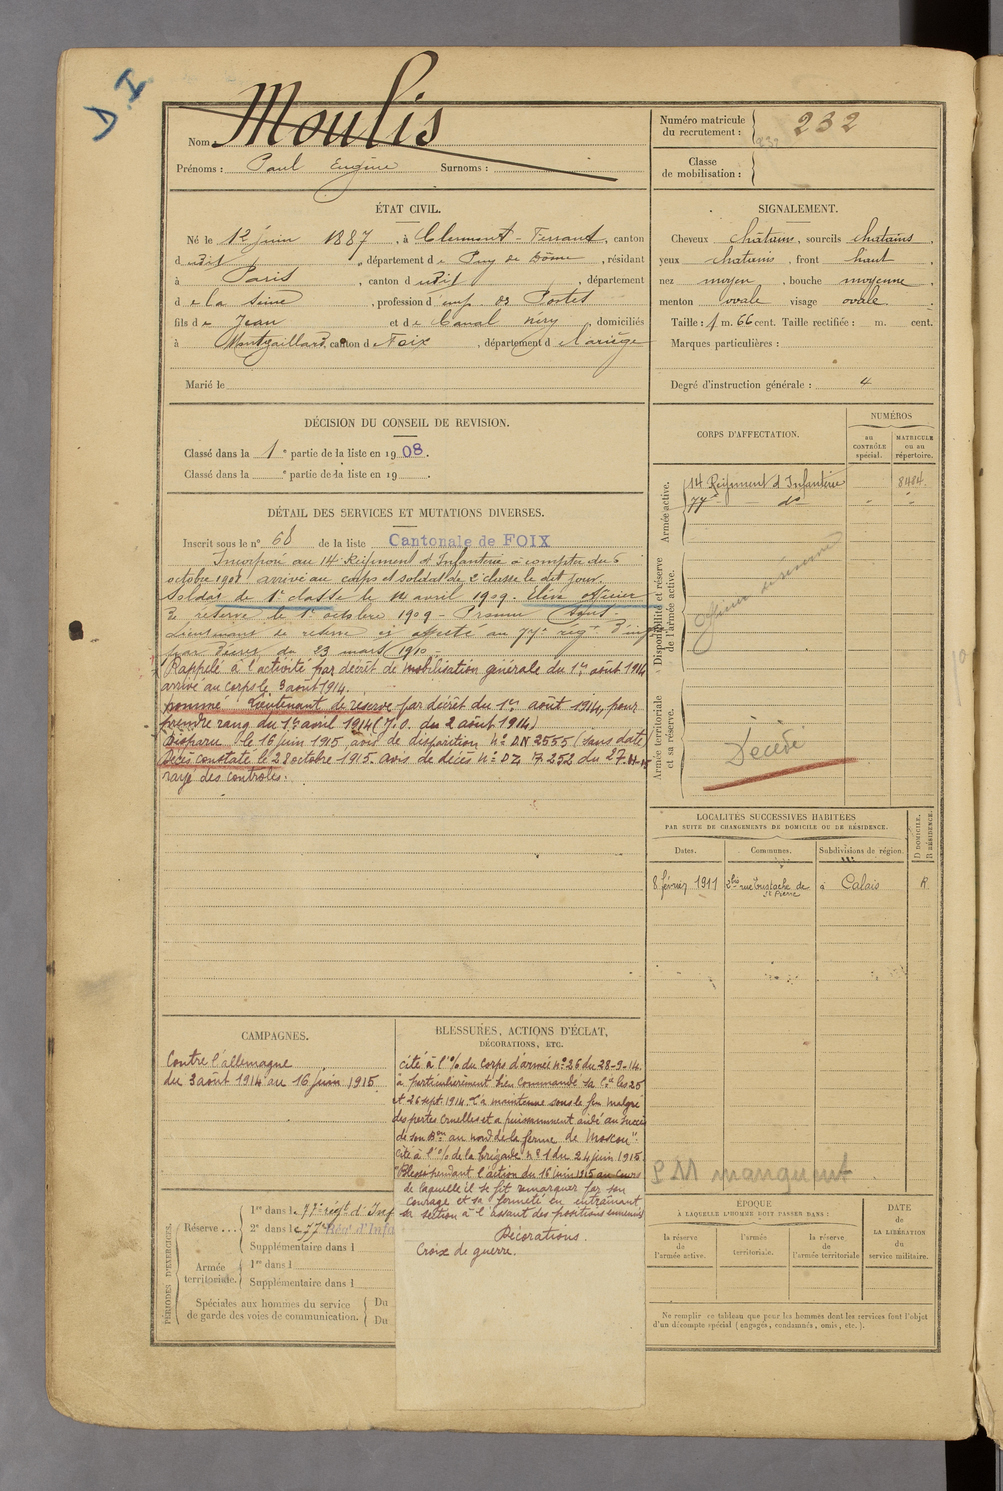 D I
Nom Moulis
Prénoms : Paul Eugène Surnoms :
Numéro matricule du recrutement : 232
Classe de mobilisation :
ÉTAT CIVIL.
Né le 12 juin 1887, à Clermont-Ferrand, canton
d udit, département de Puy de Dôme, résidant
à Paris, canton d udit, département
de la Seine, profession d'emp. des Postes
fils de Jean et de Canal, domiciliés
à Montgaillard, canton de Foix, département de l'ariège
Marié le
SIGNALEMENT.
Cheveux châtains, sourcils châtains,
yeux chatains, front haut
nez moyen, bouche moyenne
menton ovale visage ovale.
Taille : 1 m. 66 cent. Taille rectifiée : m. cent.
Marques particulières :
Degré d'instruction générale : 4
DÉCISION DU CONSEIL DE REVISION.
Classé dans la 1e partie de la liste en 1908.
Classé dans la e partie de la liste en 19 .
DÉTAIL DES SERVICES ET MUTATIONS DIVERSES.
Inscrit sous le n° 68 de la liste Cantonale de FOIX
Incorporé au 14e Régiment d'Infanterie à compter du 6
octobre 1908 arrivé au corps et soldat de 2e classe le dit jour.
Soldat de 1e classe le 12 avril 1909. Elève officier
de réserve le 1e octobre 1909 - Promu Sous-
Lieutenant de réserve et affecté au 77e régt d'inf
par décret du 23 mars 1910.
Rappelé à l'activité par décret de mobilisation générale du 1er août 1914
arrivé au corps le 3 août 1914.
nommé Lieutenant de réserve par décret du 1er août 1914, pour
prendre rang du 1er avril 1914 (J.O. du 2 août 1914)
Disparu le 16 juin 1915 avis de disparition N° DN 2555 (sans date)
Décès constaté le 28 octobre 1915. avis de décès N° DZ 7.252 du 27-11-15
rayé des contrôles.
CORPS D'AFFECTATION.
NUMÉROS
au CONTRÔLE spécial.
MATRICULE ou au répertoire.
Armée active.
14 Régiment d'Infanterie 8484
77e - do - " "
Disponibilité et réserve de l'armée active.
Officier de réserve
Armée territoriale et sa réserve.
Décédé
LOCALITÉS SUCCESSIVES HABITÉES
PAR SUITE DE CHANGEMENTS DE DOMICILE OU DE RÉSIDENCE.
Dates. Communes. Subdivisions de région. D DOMICILE. R RÉSIDENCE.
8 février 1911 2bis rue Eustache de St Pierre à Calais R.
CAMPAGNES.
Contre l'allemagne
du 3 août 1914 au 16 juin 1915.
BLESSURES, ACTIONS D'ÉCLAT,
DÉCORATIONS, ETC.
cité à l'o/ du corps d'armée N° 26 du 28-9-14.
a particulièrement bien commandé sa Cie les 25
et 26 sept. 1914. L'a maintenue sous le feu malgré
des pertes cruelles et a puissamment aidé au succès
de son Bon au nord de la ferme de Moscou".
Cité à l'o/ de la brigade N° 1 du 24 juin 1915.
"Blessé pendant l'action du 16 juin 1915 au cours
de laquelle il se fit remarquer par son
courage et sa fermeté en entraînant
sa section à l'assaut des positions ennemies
Décorations.
Croix de guerre.
P M manquent
PÉRIODES D'EXERCICES.
Réserve...
1re dans le 77e régt d'Inf
2e dans le 77e Régt d'Infa
Supplémentaire dans l
Armée territoriale.
1re dans l
Supplémentaire dans l
Spéciales aux hommes du service Du
de garde des voies de communication. Du
ÉPOQUE
À LAQUELLE L'HOMME DOIT PASSER DANS :
la réserve de l'armée active.
l'armée territoriale.
la réserve de l'armée territoriale
DATE de LA LIBÉRATION du service militaire.
Ne remplir ce tableau que pour les hommes dont les services font l'objet
d'un décompte spécial (engagés, condamnés, omis, etc.).